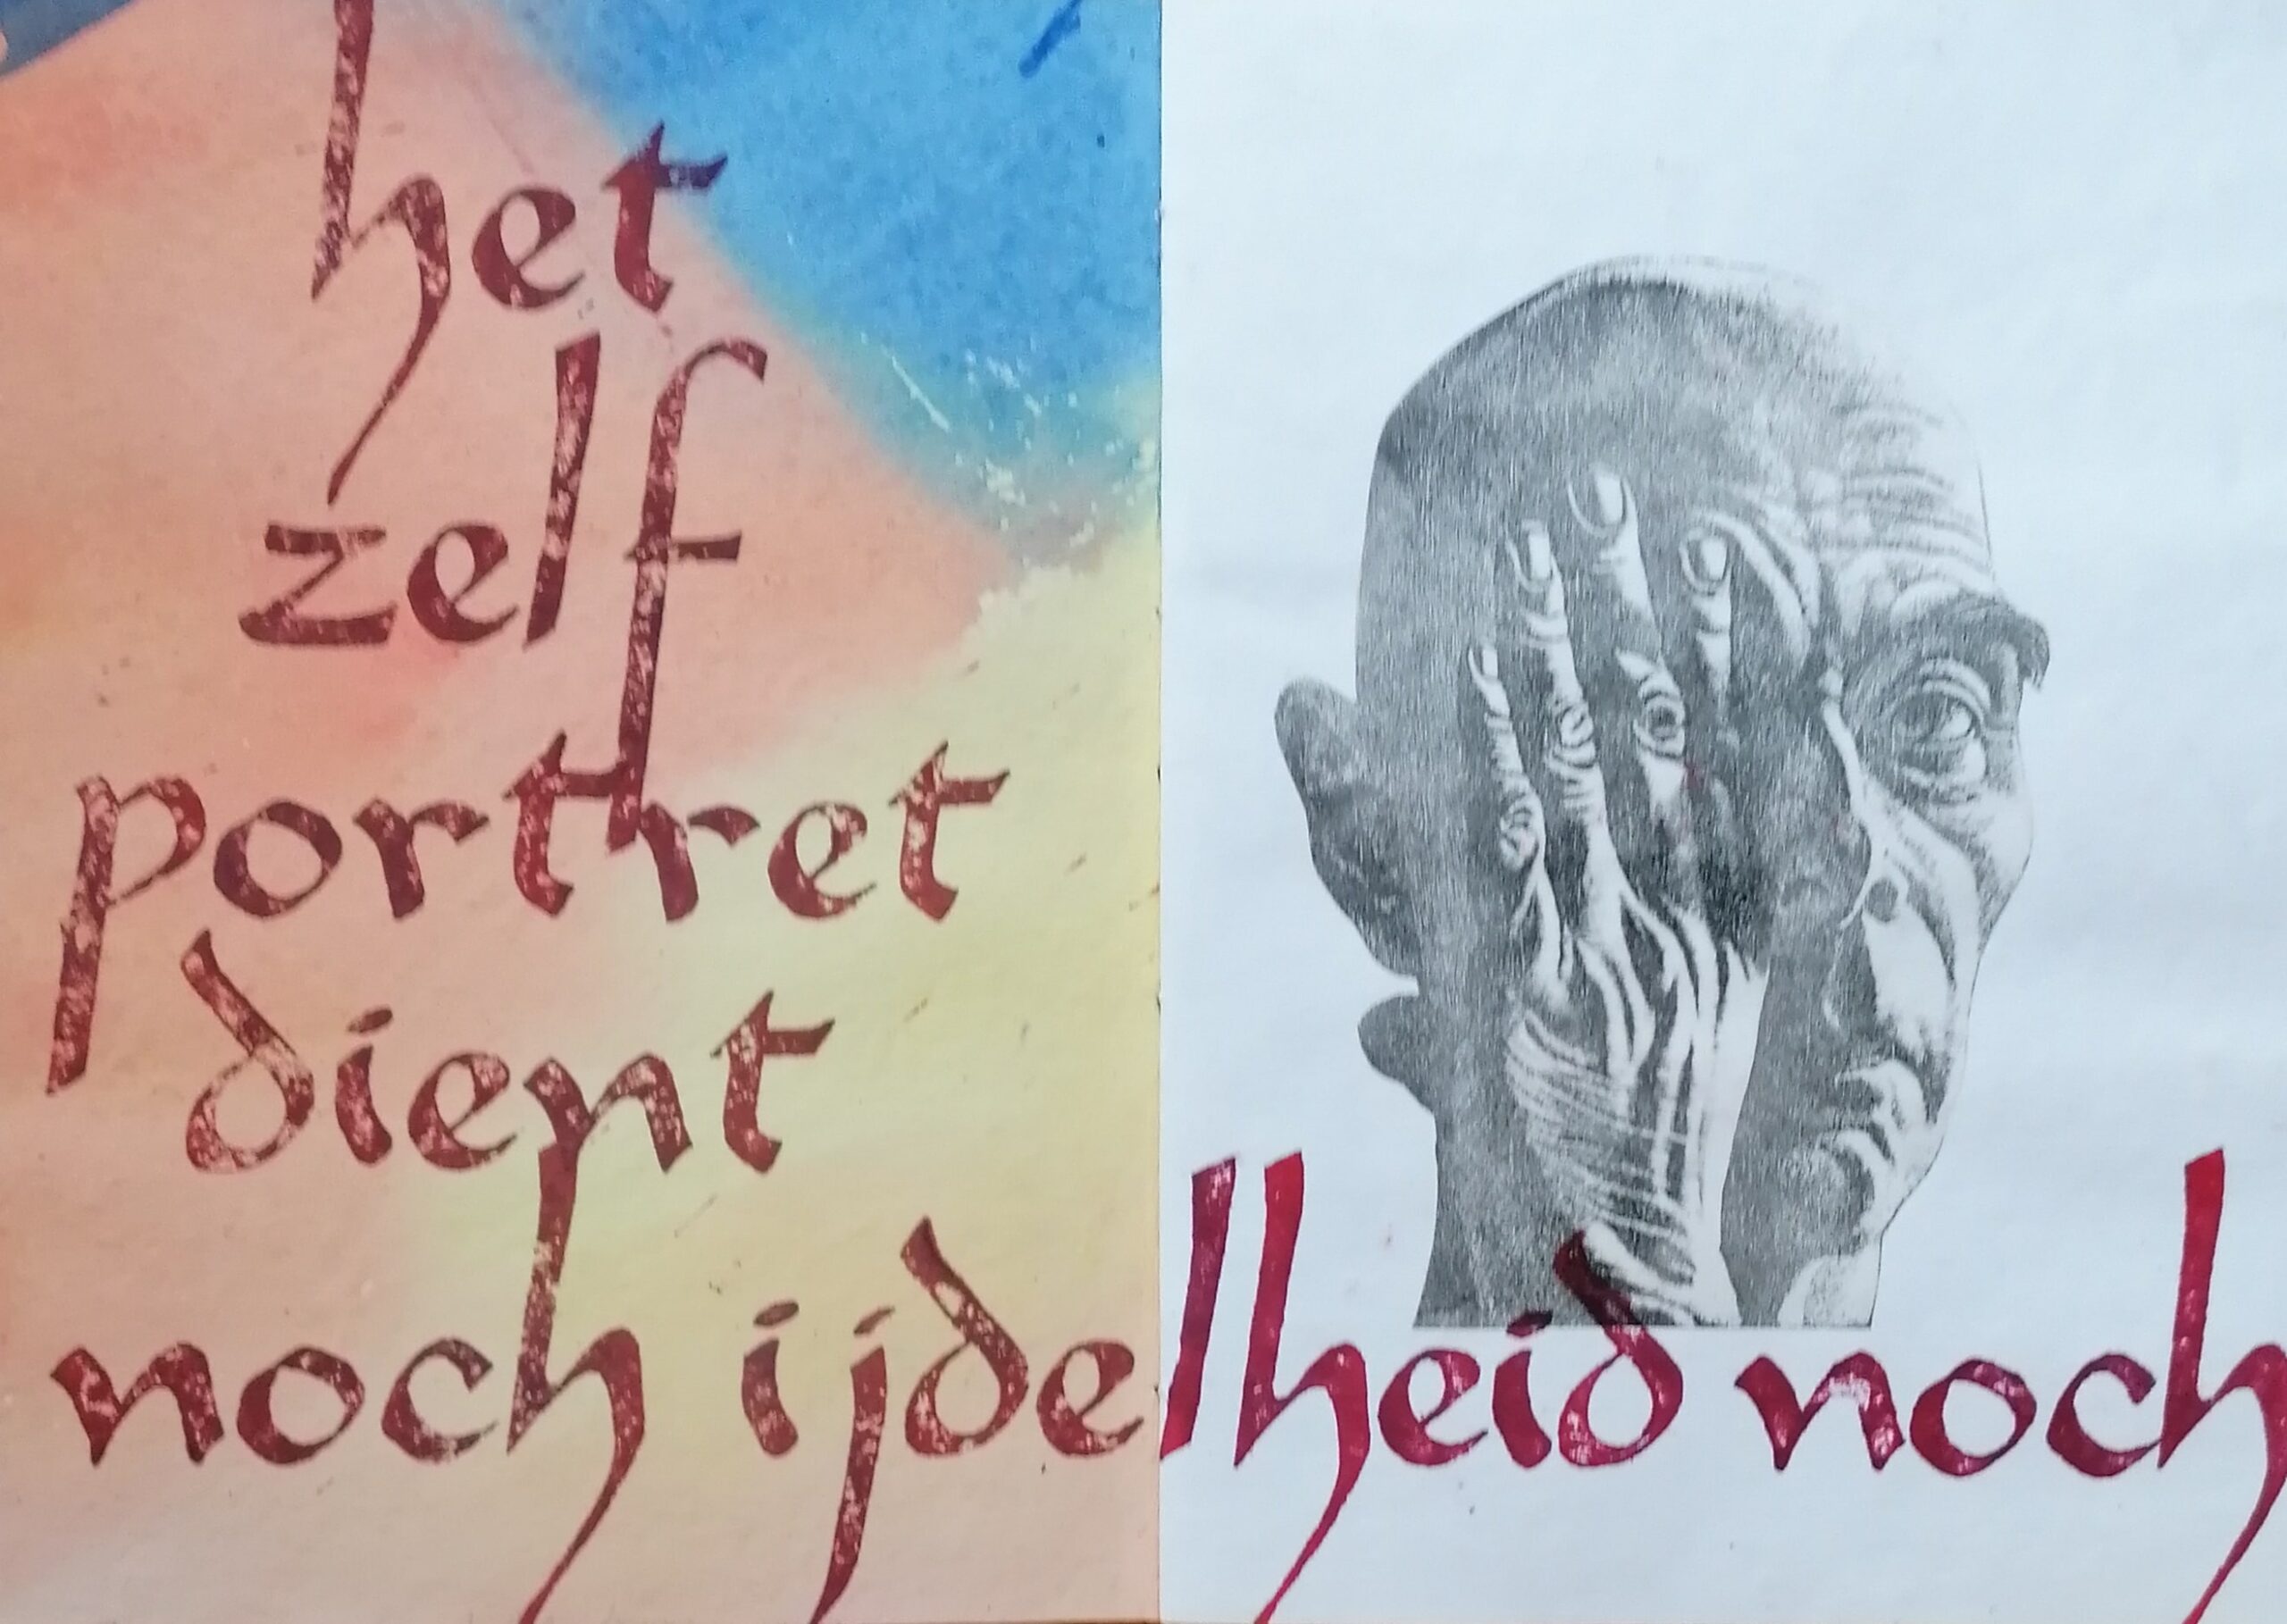 het
zelf
portret
dient
noch ijdelheid noch